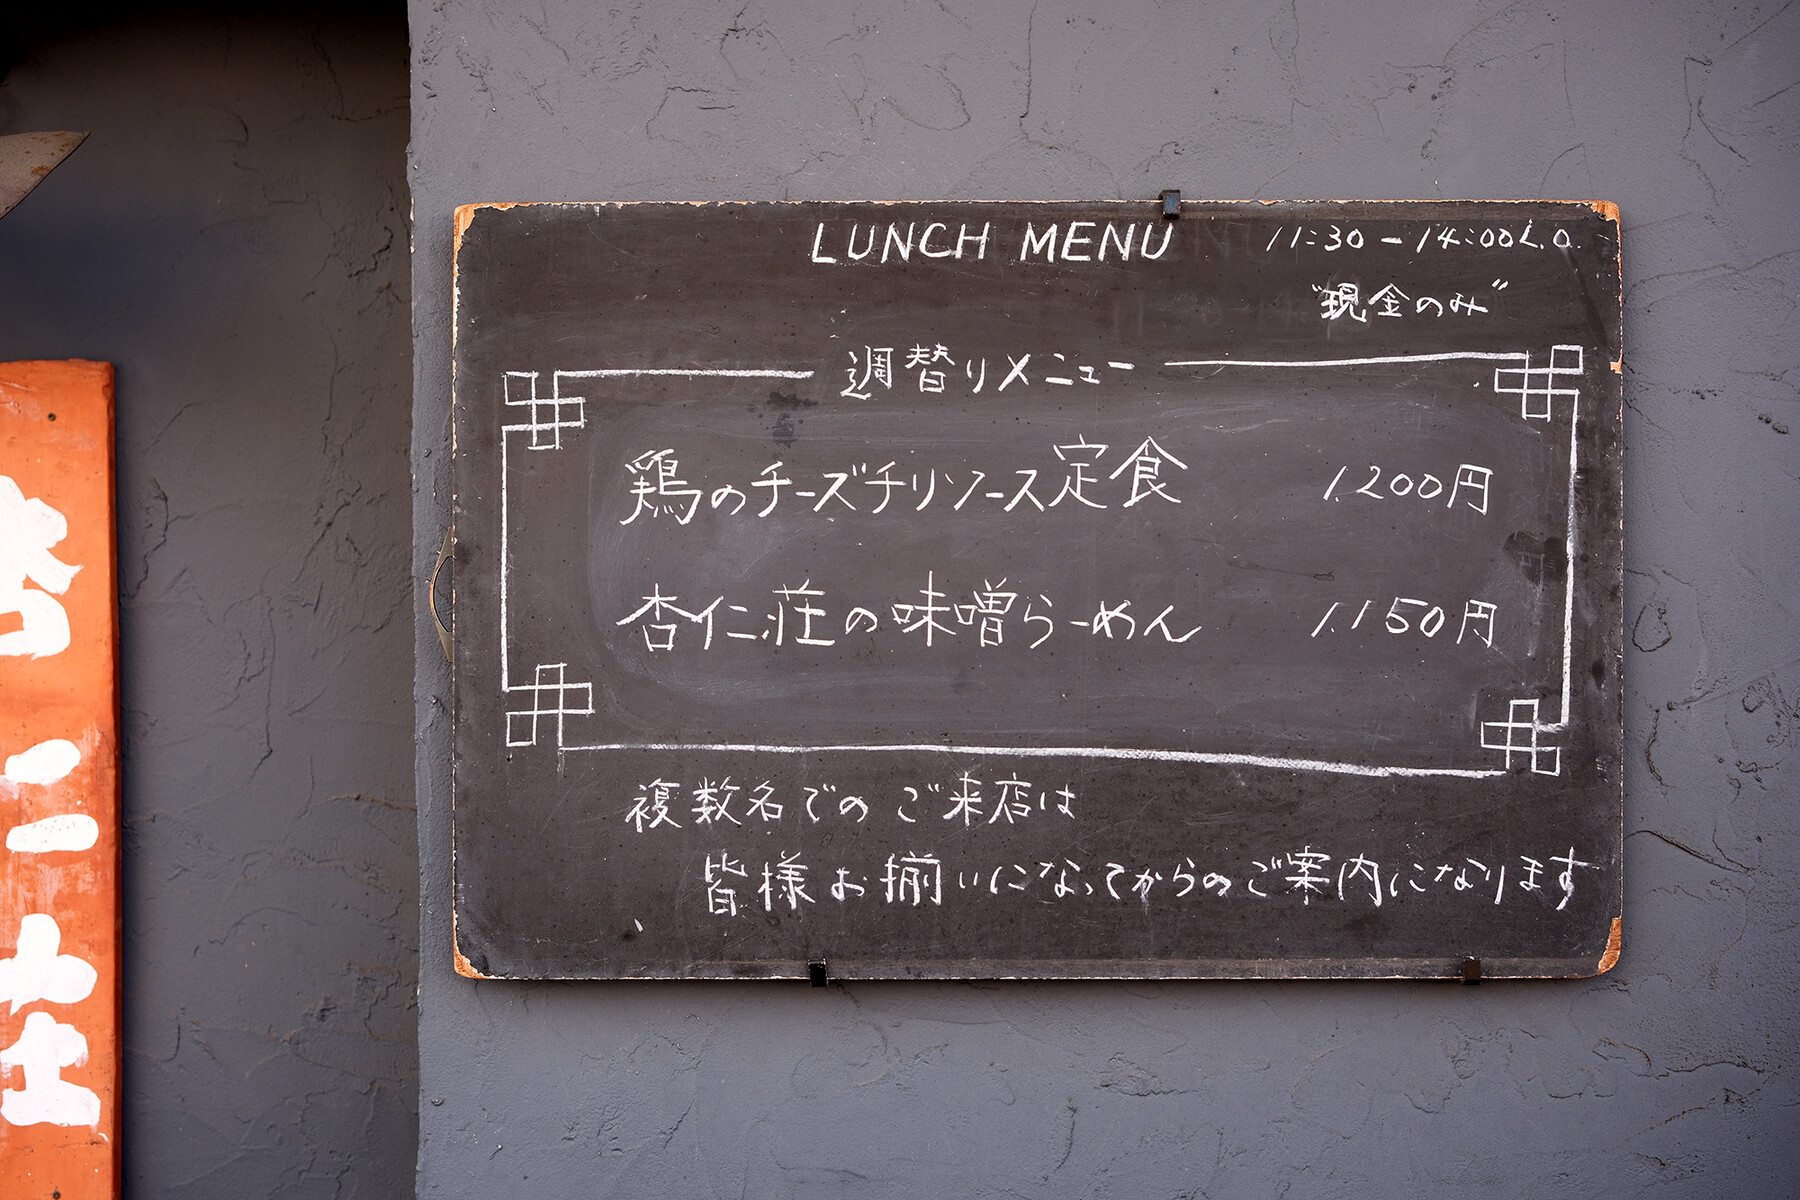 LUNCH MENU 11:30-14:00 L.O.
"現金のみ"
週替りメニュー
鶏のチーズチリソース定食 1.200円
杏仁荘の味噌らーめん 1.150円
複数名でのご来店は
皆様お揃いになってからのご案内になります